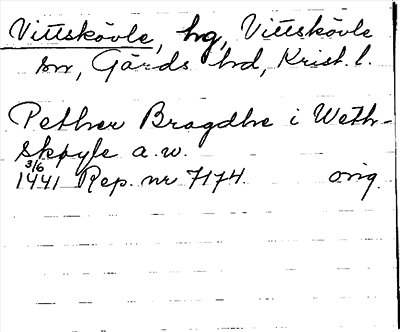 Vittskövle, hg, Vittskövle
sn, Gärds hd, Krist. l.
Pether Bragdhe i Weth-
skøyle a. w.
3/6
1441 Rep. nr 7174. orig.